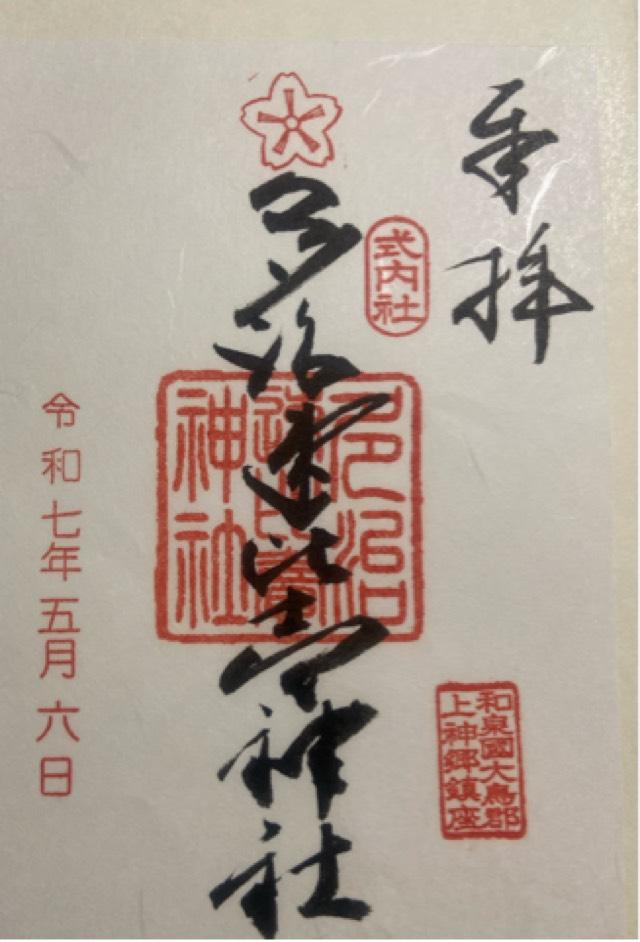 奉拝
式内社
多治速比売神社
多治
速比賣
神社
和泉國大鳥郡
上神郷鎮座
令和七年五月六日